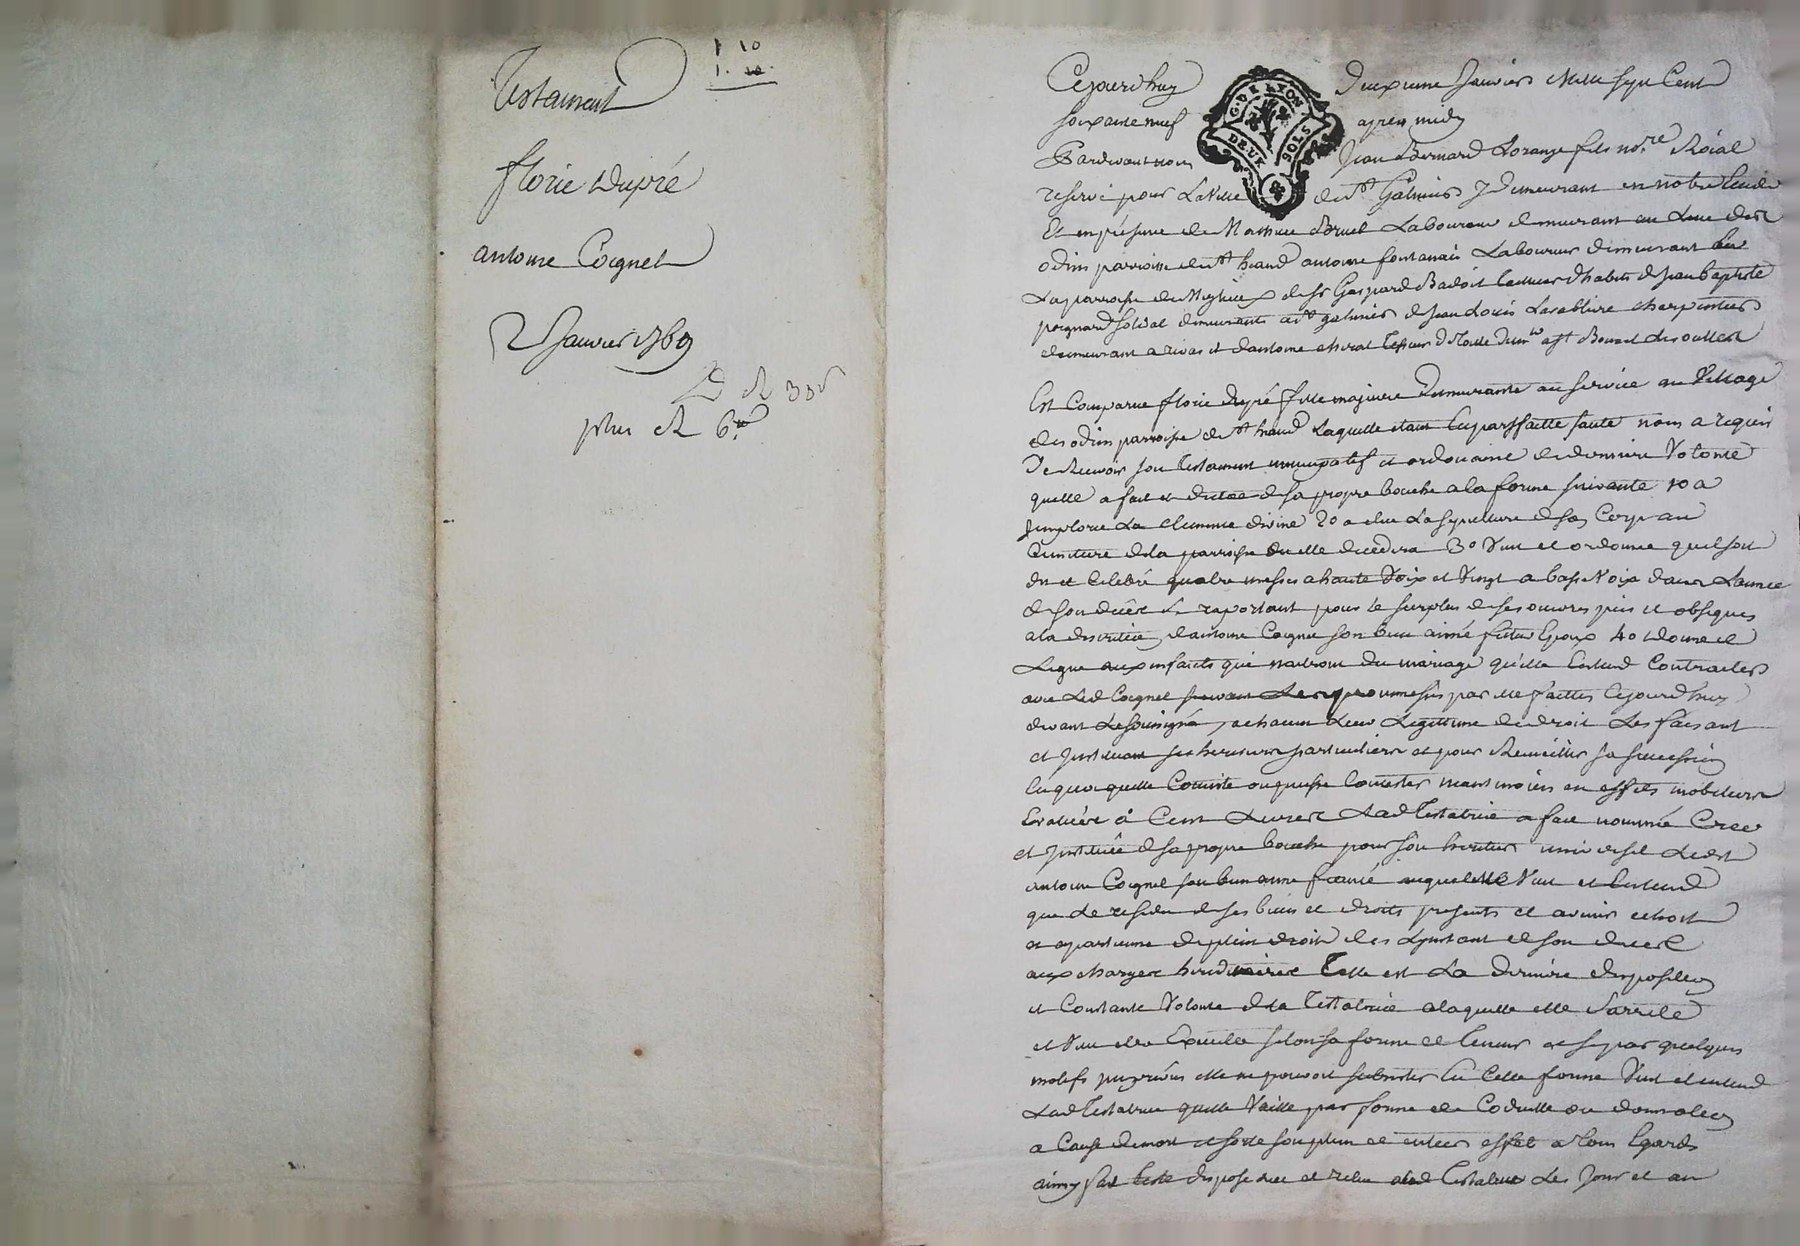 Testament
1 10
florie Dupré
antoine Coignet
2 Janvier 1769
plus
Cejourdhuy deuxieme Janvier Mille sept Cent
G. DE LYON
DEUX SOLS
soixante neuf apres midy
Pardevant nous Jean Bernard Lorange fils no.re Roial
reservé pour La Ville de st Galmier y demeurant en notre
Et en présence de Mathieu Bruel Laboureur demeurant au Lieu des
odins parroisse de st heand antoine fontanais Laboureur demeurant
La parroisse de de Sr Gaspard Badoit tailleur d'habits de Jean baptiste
poignard soldat demeurants a st galmier de Jean Louis charpentier
demeurant a rivas et d'antoine
Est Comparue florie dupré fille majeure demeurante au service au Village
des odins parroisse de st heand Laquelle etant en parfaitte santé nous a requis
de Recevoir son Testament nuncupatif et ordonance de derniere Volonté
quelle a fait et dictée de sa propre bouche a la forme suivante 1o a
Imploré La Clemence divine 2o a elue La sepulture de son Corps au
Cimetiere de la parroisse ou elle decedera 3o Veut et ordonne quil soit
dit et Celebré quatre messes a haute Voix et Vingt a basse Voix dans Lannee
de son decès Se raportant pour le surplus de ses œuvres pies et obseques
a la discretion d'antoine Coignet son bien aimé futur Epoux 4o donne et
Legue aux enfants qui naitront du mariage qu'elle Entend Contracter
avec Led Coignet suivant Les promesses par elle faittes Cejourdhuy
devant Le soussigné, a chacun Leur Legitime de droit Les faisant
et Instituant ses heritiers particuliers et pour Recueillir sa succession
En quoy quelle Consiste ou puisse Consister neant moins en effets mobiliers
Evalués à Cent Livres Lad Testatrice a fait nommé Creé
et Institué de sa propre bouche pour son heritier universel Ledit
antoine Coignet son bien aimé fiancé auquel elle Veut et Entend
que Le residu de ses biens et droits presents et avenir echoit
et apartienne de plein droit des Linstant de son decès
aux charges hereditaires Telle est La derniere disposition
et Constante Volonté de la Testatrice a laquelle elle Sarrete
et Veut etre Executée selon sa forme et teneur et si par quelques
motifs imprevus elle ne pouvoit subsister En Cette forme Veut et entend
Lad Testatrice quelle Vaille par forme de Codicille ou donnation
a Cause de mort et sorte son plein et entier effet a tous Egards
ainsy fait testé disposé Lue et relue a lad Testatrice Les Jour et an